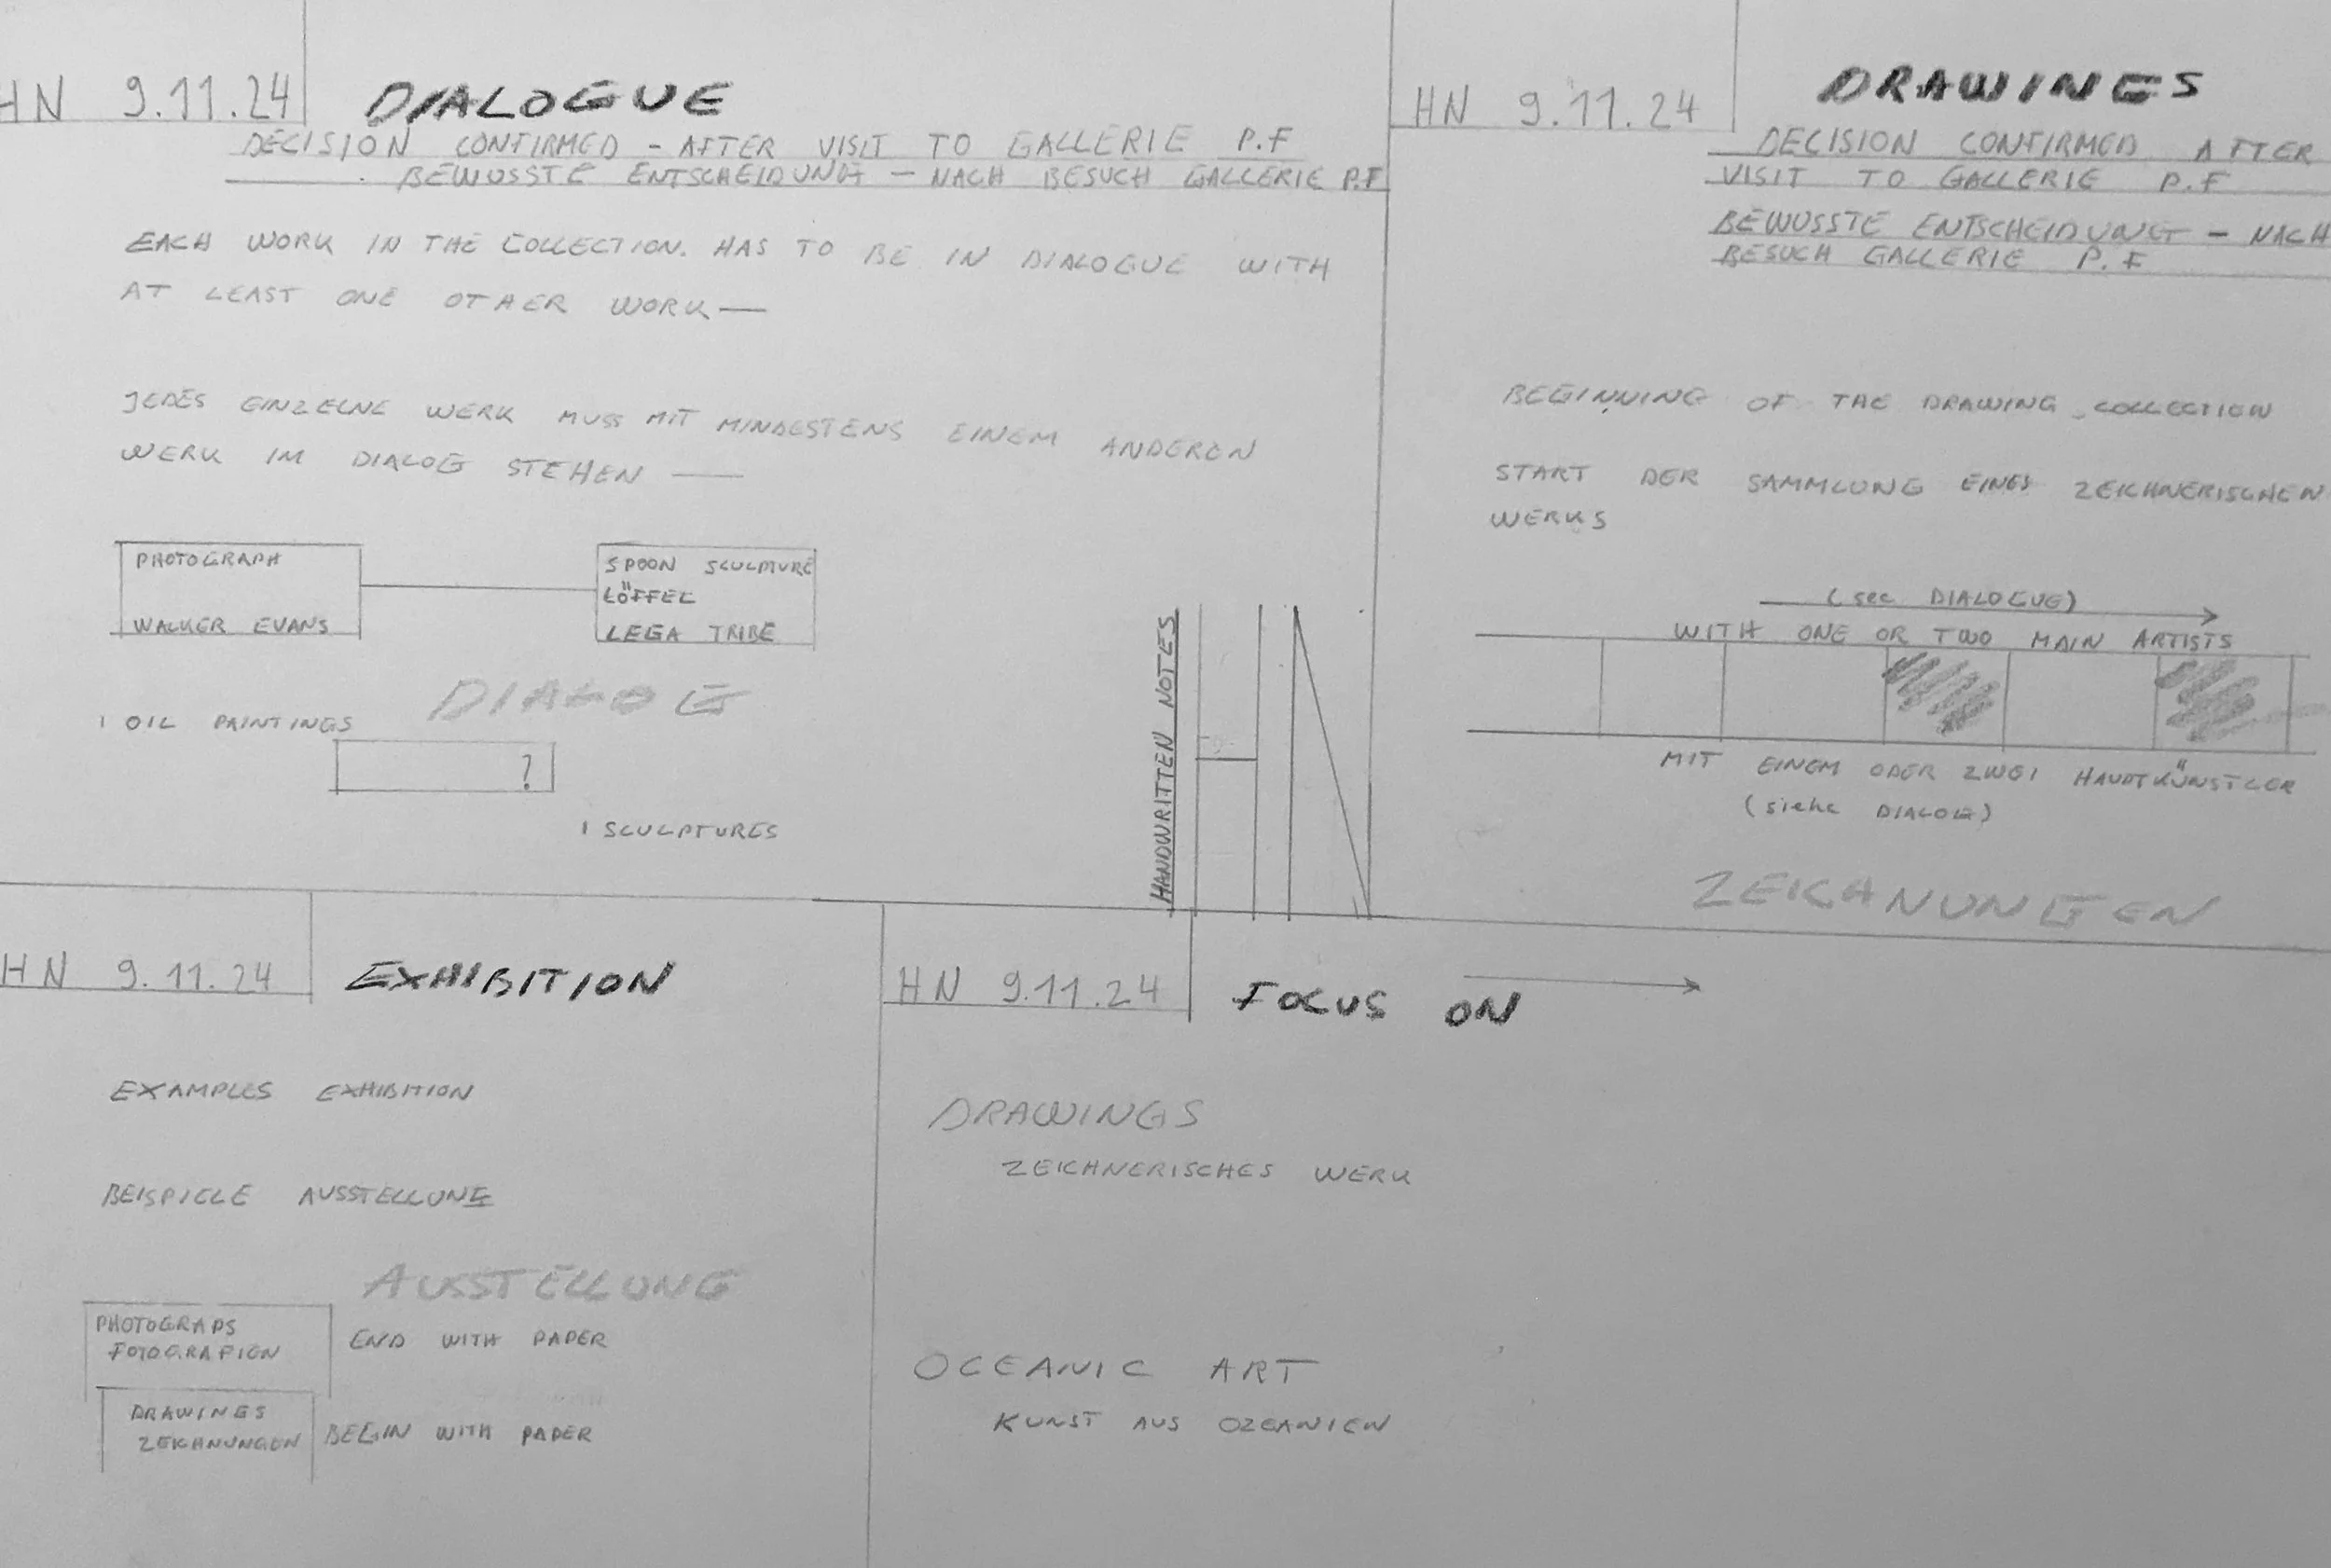 HN 9.11.24
DIALOGUE
DECISION CONFIRMED - AFTER VISIT TO GALLERIE P.F
BEWUSSTE ENTSCHEIDUNG - NACH BESUCH GALLERIE P.F
EACH WORK IN THE COLLECTION. HAS TO BE IN DIALOGUE WITH
AT LEAST ONE OTHER WORK —
JEDES EINZELNE WERK MUSS MIT MINDESTENS EINEM ANDEREN
WERK IM DIALOG STEHEN —
PHOTOGRAPH
WALKER EVANS
SPOON SCULPTURE
LÖFFEL
LEGA TRIBE
DIALOG
1 OIL PAINTINGS
?
1 SCULPTURES
HANDWRITTEN NOTES
HN 9.11.24
DRAWINGS
DECISION CONFIRMED AFTER
VISIT TO GALLERIE P.F
BEWUSSTE ENTSCHEIDUNG - NACH
BESUCH GALLERIE P.F
BEGINNING OF THE DRAWING COLLECTION
START DER SAMMLUNG EINES ZEICHNERISCHEN
WERKS
(see DIALOGUE)
WITH ONE OR TWO MAIN ARTISTS
MIT EINEM ODER ZWEI HAUPTKÜNSTLER
(siehe DIALOG)
ZEICHNUNGEN
HN 9.11.24
EXHIBITION
EXAMPLES EXHIBITION
BEISPIELE AUSSTELLUNG
AUSSTELLUNG
PHOTOGRAPS
FOTOGRAFIEN
END WITH PAPER
DRAWINGS
ZEICHNUNGEN
BEGIN WITH PAPER
HN 9.11.24
FOCUS ON
DRAWINGS
ZEICHNERISCHES WERK
OCEANIC ART
KUNST AUS OZEANIEN